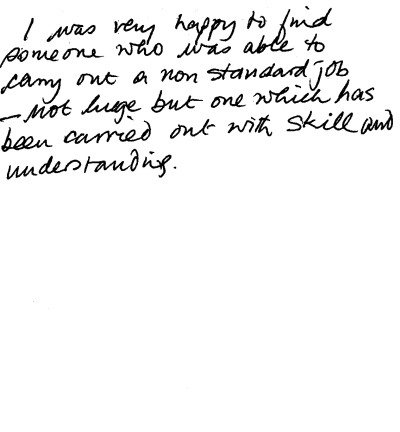 I was very happy to find
someone who was able to
carry out a non standard job
– not huge but one which has
been carried out with skill and
understanding.